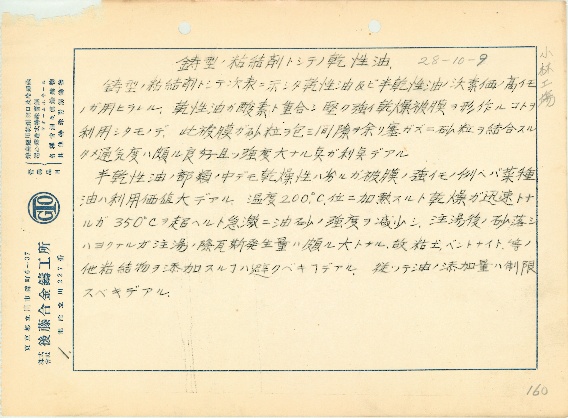 鋳型ノ粘結剤トシテノ乾性油. 28-10-9
小林工場
鋳型ノ粘結剤トシテ次表ニ示シタ乾性油及ビ半乾性油ノ沃素価ノ高イモ
ノガ用ヒラレル. 乾性油ガ酸素ト重合シ堅ク強イ乾燥被膜ヲ形作ルコトヲ
利用シタモノデ. 此被膜ガ砂粒ヲ包ミ間隙ヲ余リ塞ガズニ砂粒ヲ結合スル
タメ通気度ハ頗ル良好且ツ強度大ナル点ガ利点デアル.
半乾性油ノ部類ノ中デモ乾燥性ハ劣ルガ被膜ノ強イモノ例ヘバ菜種
油ハ利用価値大デアル. 温度200℃位ニ加熱スルト乾燥ガ迅速トナ
ルガ350℃ヲ超ヘルト急激ニ油砂ノ強度ヲ減少シ. 注湯後ノ砂落シ
ハヨクナルガ注湯ノ際瓦斯発生量ハ頗ル大トナル. 故粘土ベントナイト.等ノ
他粘結物ヲ添加スルコハ避クベキコデアル. 従ッテ油ノ添加量ハ制限
スベキデアル.
GTO
株式会社 後藤合金鋳工所
東京都立川市曙町6-37
電話立川227番
160